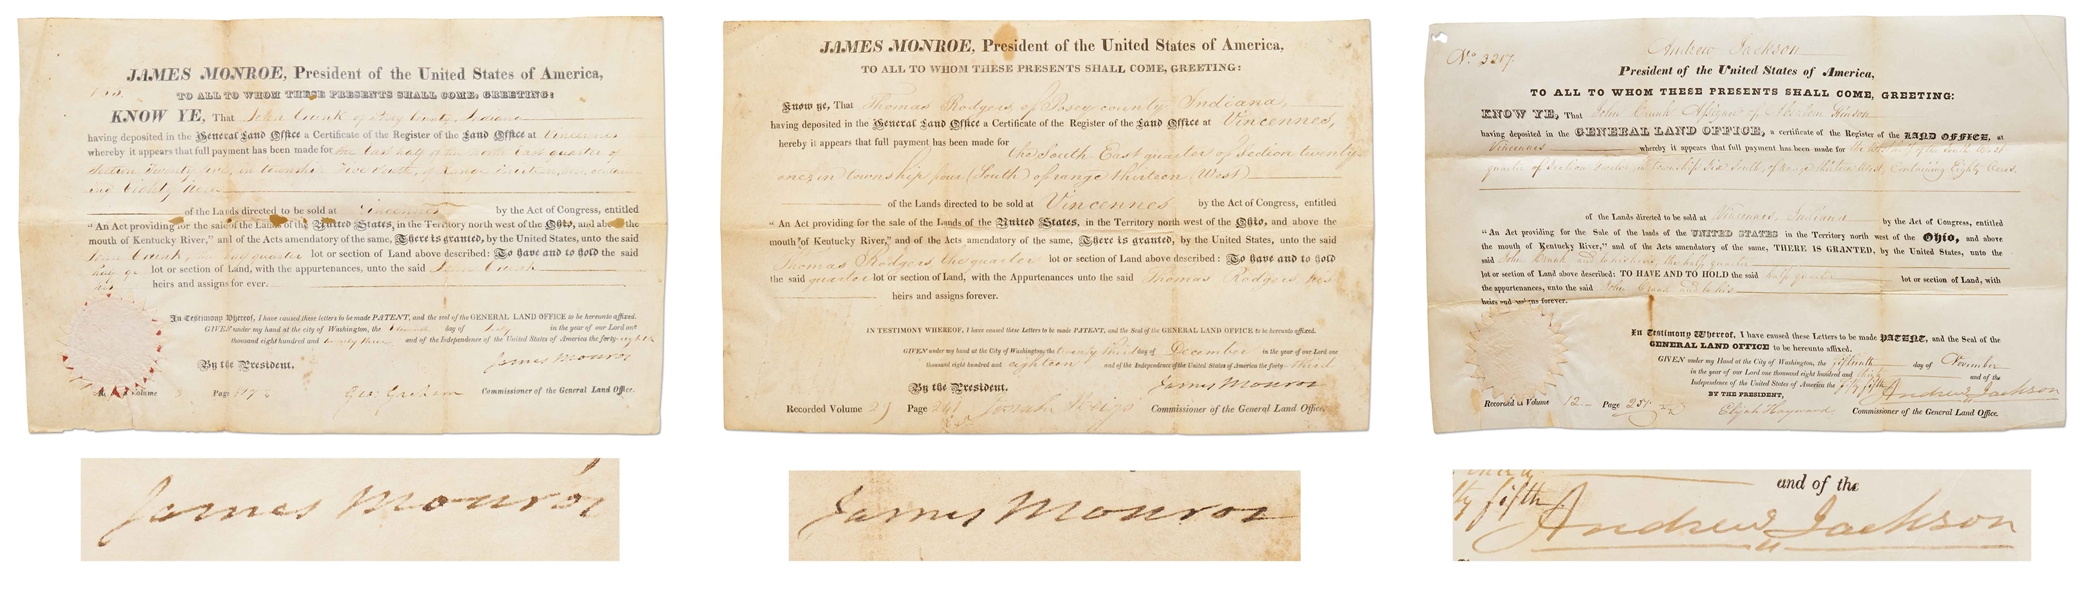 JAMES MONROE, President of the United States of America,
TO ALL TO WHOM THESE PRESENTS SHALL COME, GREETING:
KNOW YE, That John Crunk of County, Indiana
having deposited in the General Land Office a Certificate of the Register of the Land Office at Vincennes
whereby it appears that full payment has been made for the East half of the North East quarter of
Section Twenty five, in township Five South, of Range thirteen
and Eighty Acres
of the Lands directed to be sold at Vincennes by the Act of Congress, entitled
"An Act providing for the sale of the Lands of the United States, in the Territory north west of the Ohio, and above the
mouth of Kentucky River," and of the Acts amendatory of the same, There is granted, by the United States, unto the said
John Crunk, the quarter lot or section of Land above described: To have and to hold the said
lot or section of Land, with the appurtenances, unto the said John Crunk
heirs and assigns for ever.
In Testimony Whereof, I have caused these letters to be made PATENT, and the seal of the GENERAL LAND OFFICE to be hereunto affixed.
GIVEN under my hand at the city of Washington, the day of July in the year of our Lord one
thousand eight hundred and twenty three and of the Independence of the United States of America the forty-eighth
By the President. James Monroe
Volume Page Geo: Graham Commissioner of the General Land Office.
James Monroe
JAMES MONROE, President of the United States of America,
TO ALL TO WHOM THESE PRESENTS SHALL COME, GREETING:
Know ye, That Thomas Rodgers, of Posey county Indiana,
having deposited in the General Land Office a Certificate of the Register of the Land Office at Vincennes,
hereby it appears that full payment has been made for
the South East quarter of Section twenty
one, in township four (South) of range thirteen (West)
of the Lands directed to be sold at Vincennes by the Act of Congress, entitled
"An Act providing for the sale of the Lands of the United States, in the Territory north west of the Ohio, and above the
mouth of Kentucky River," and of the Acts amendatory of the same, There is granted, by the United States, unto the said
Thomas Rodgers the quarter lot or section of Land above described: To have and to hold
the said quarter lot or section of Land, with the Appurtenances, unto the said Thomas Rodgers his
heirs and assigns forever.
IN TESTIMONY WHEREOF, I have caused these Letters to be made PATENT, and the Seal of the GENERAL LAND OFFICE to be hereunto affixed.
GIVEN under my hand at the City of Washington, the twenty third day of December in the year of our Lord one
thousand eight hundred and eighteen and of the Independence of the United States of America the forty-third
By the President. James Monroe
Recorded Volume 29 Page 241 Josiah Meigs Commissioner of the General Land Office.
James Monroe
No. 3217.
Andrew Jackson
President of the United States of America,
TO ALL TO WHOM THESE PRESENTS SHALL COME, GREETING:
KNOW YE, That John Crunk Assignee of Hinson
having deposited in the GENERAL LAND OFFICE, a certificate of the Register of the LAND OFFICE, at
Vincennes whereby it appears that full payment has been made for the West half of the South West
quarter of Section Twelve, in township Six South, of range thirteen West, Containing Eighty Acres,
of the Lands directed to be sold at Vincennes, Indiana by the Act of Congress, entitled
"An Act providing for the Sale of the lands of the UNITED STATES in the Territory north west of the Ohio, and above
the mouth of Kentucky River," and of the Acts amendatory of the same, THERE IS GRANTED, by the United States, unto the
said John Crunk and to his heirs, the half quarter
lot or section of Land above described: TO HAVE AND TO HOLD the said half quarter lot or section of Land, with
the appurtenances, unto the said John Crunk and to his
heirs and assigns forever.
In Testimony Whereof, I have caused these Letters to be made PATENT, and the Seal of the
GENERAL LAND OFFICE to be hereunto affixed.
GIVEN under my Hand at the City of Washington, the fifteenth day of November
in the year of our Lord one thousand eight hundred and thirty and of the
Independence of the United States of America the fifty fifth
BY THE PRESIDENT, Andrew Jackson
Recorded in Volume 12 Page 257 Elijah Hayward Commissioner of the General Land Office.
and of the
ty fifth Andrew Jackson